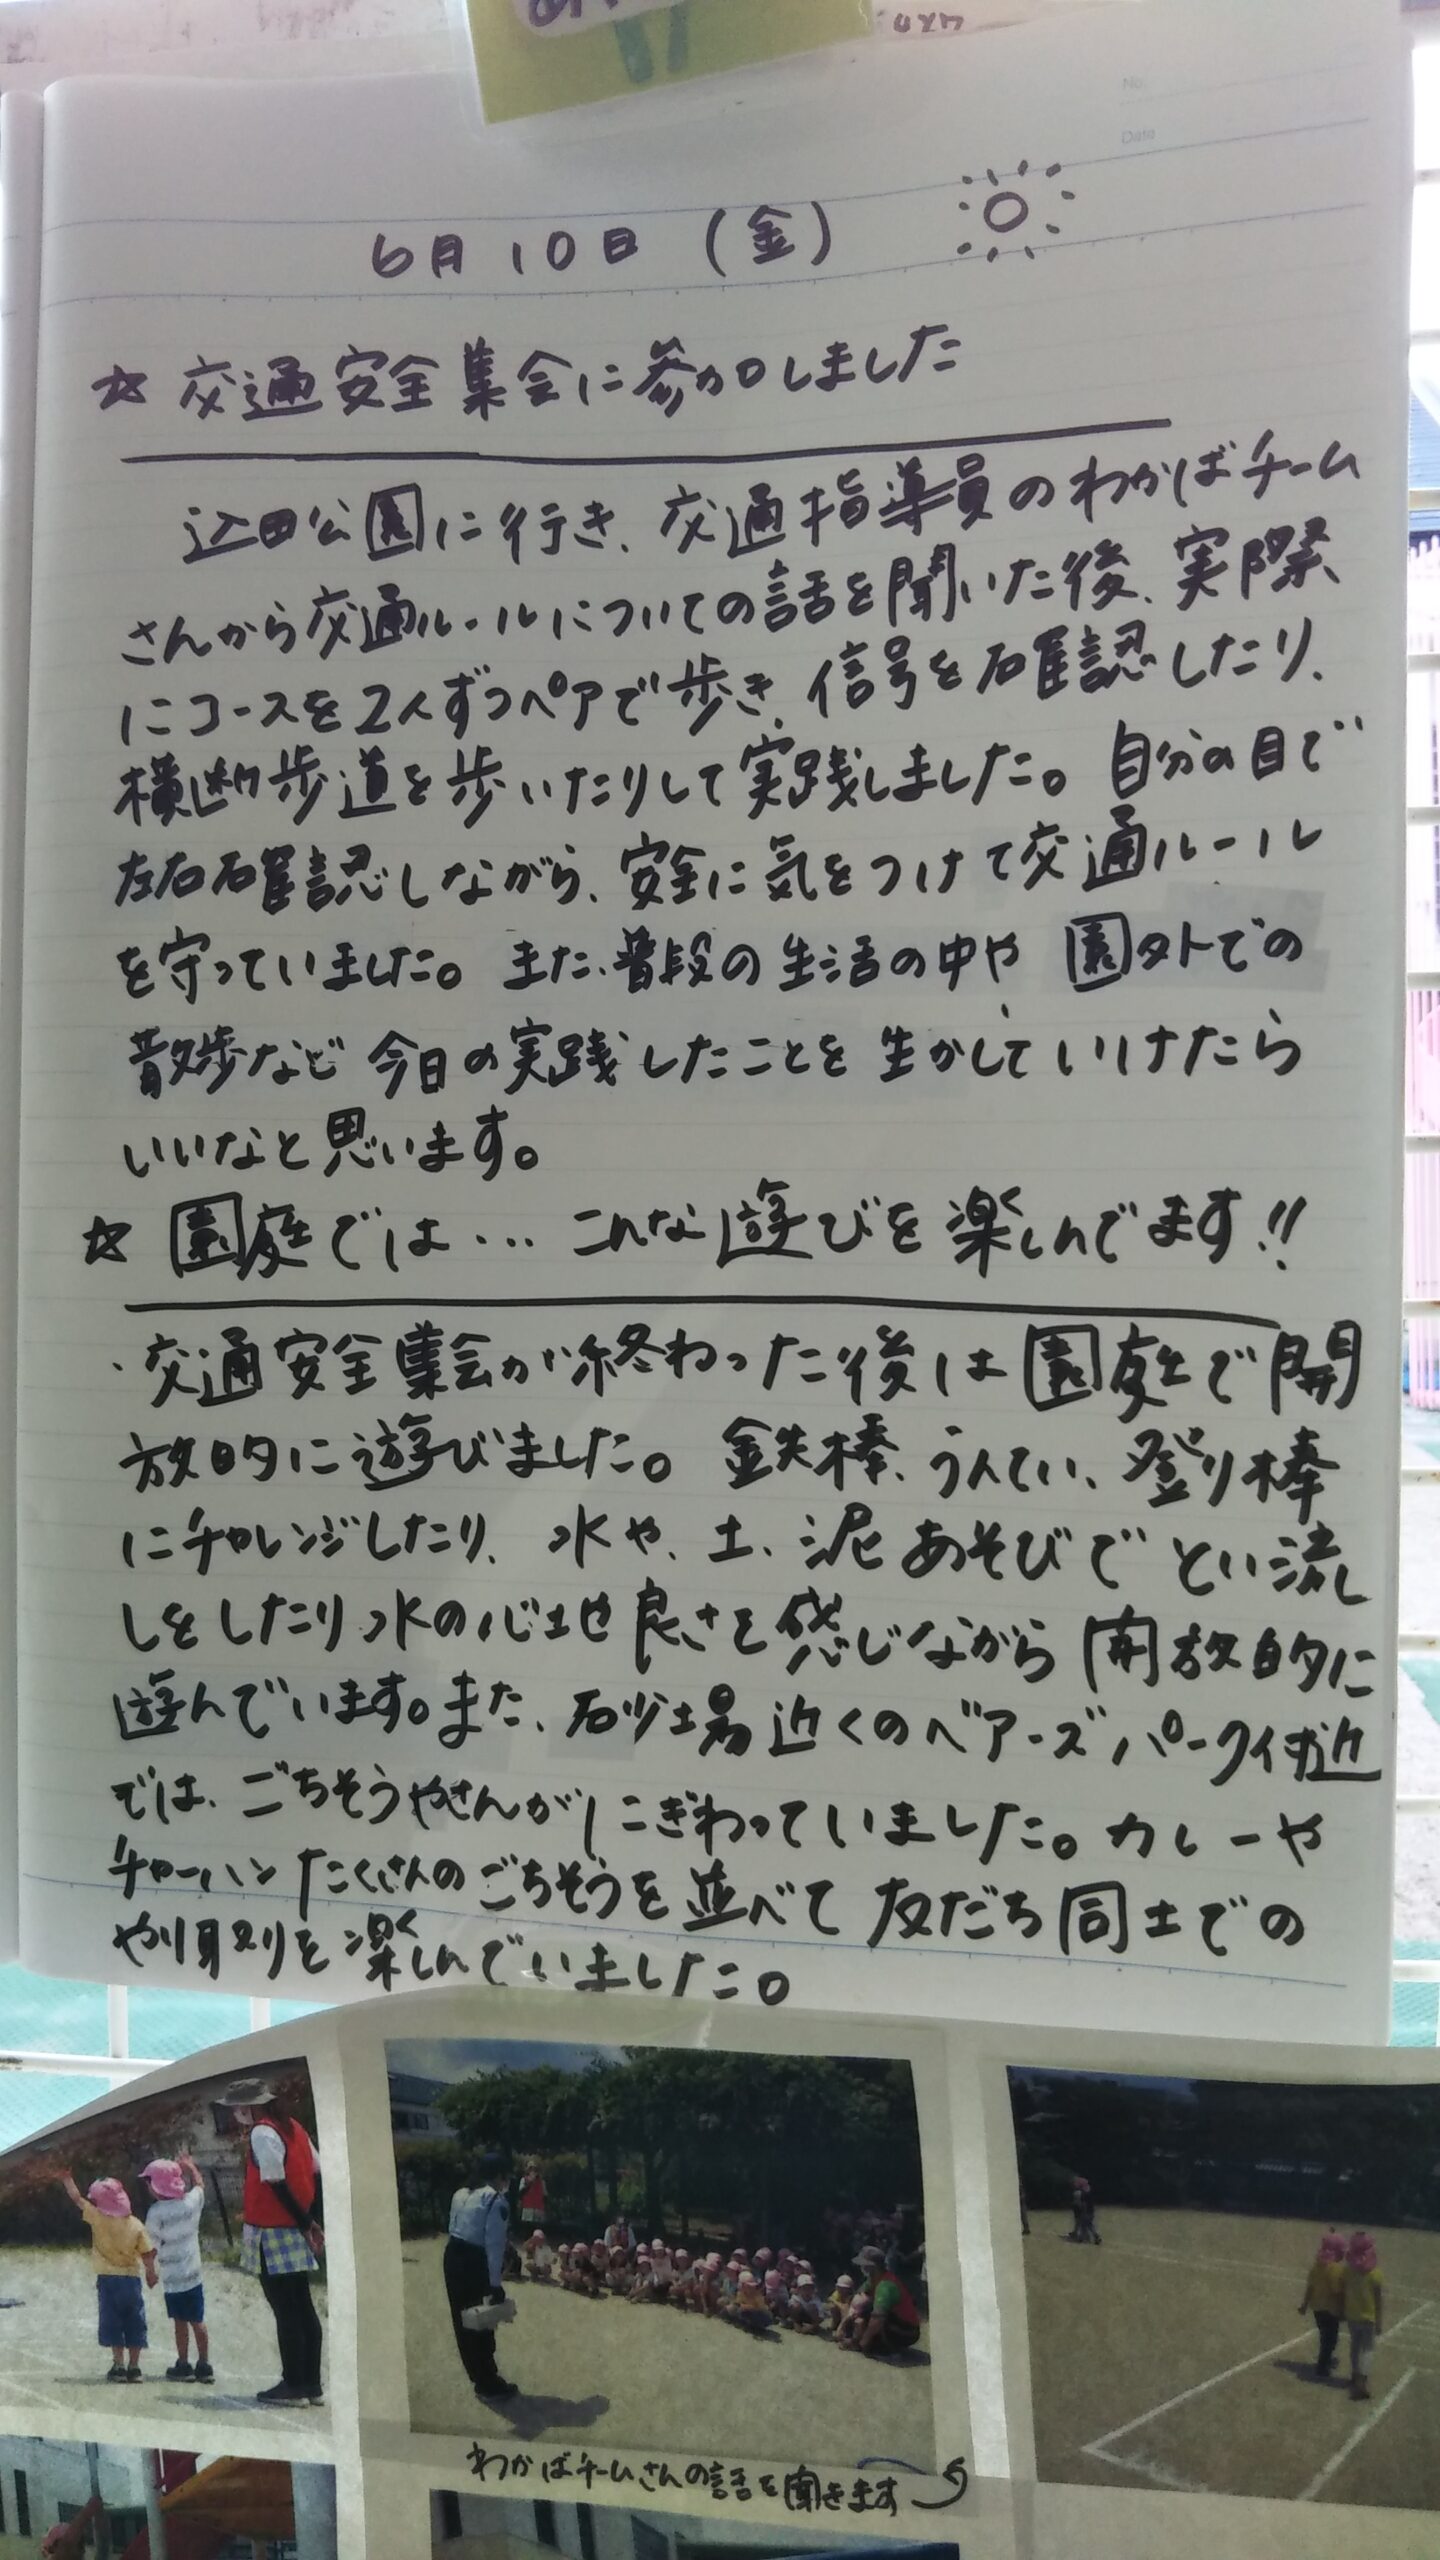 No.
Date
6月10日(金)
☆交通安全集会に参加しました
辺田公園に行き、交通指導員のわかばチーム
さんから交通ルールについての話を聞いた後、実際
にコースを2人ずつペアで歩き、信号を確認したり、
横断歩道を歩いたりして実践しました。自分の目で
左右確認しながら、安全に気をつけて交通ルール
を守っていました。また、普段の生活の中や園外での
散歩など今日の実践したことを生かしていけたら
いいなと思います。
☆園庭では… こんな遊びを楽しんでます!!
・交通安全集会が終わった後は園庭で開
放的に遊びました。鉄棒、うんてい、登り棒
にチャレンジしたり、水や、土、泥あそびでとい流し
しをしたり水の心地良さを感じながら開放的に
遊んでいます。また、砂場近くのベアーズパーク付近
では、ごちそうやさんがにぎわっていました。カレーや
チャーハンたくさんのごちそうを並べて友だち同士での
やり取りを楽しんでいました。
わかばチームさんの話を聞きます